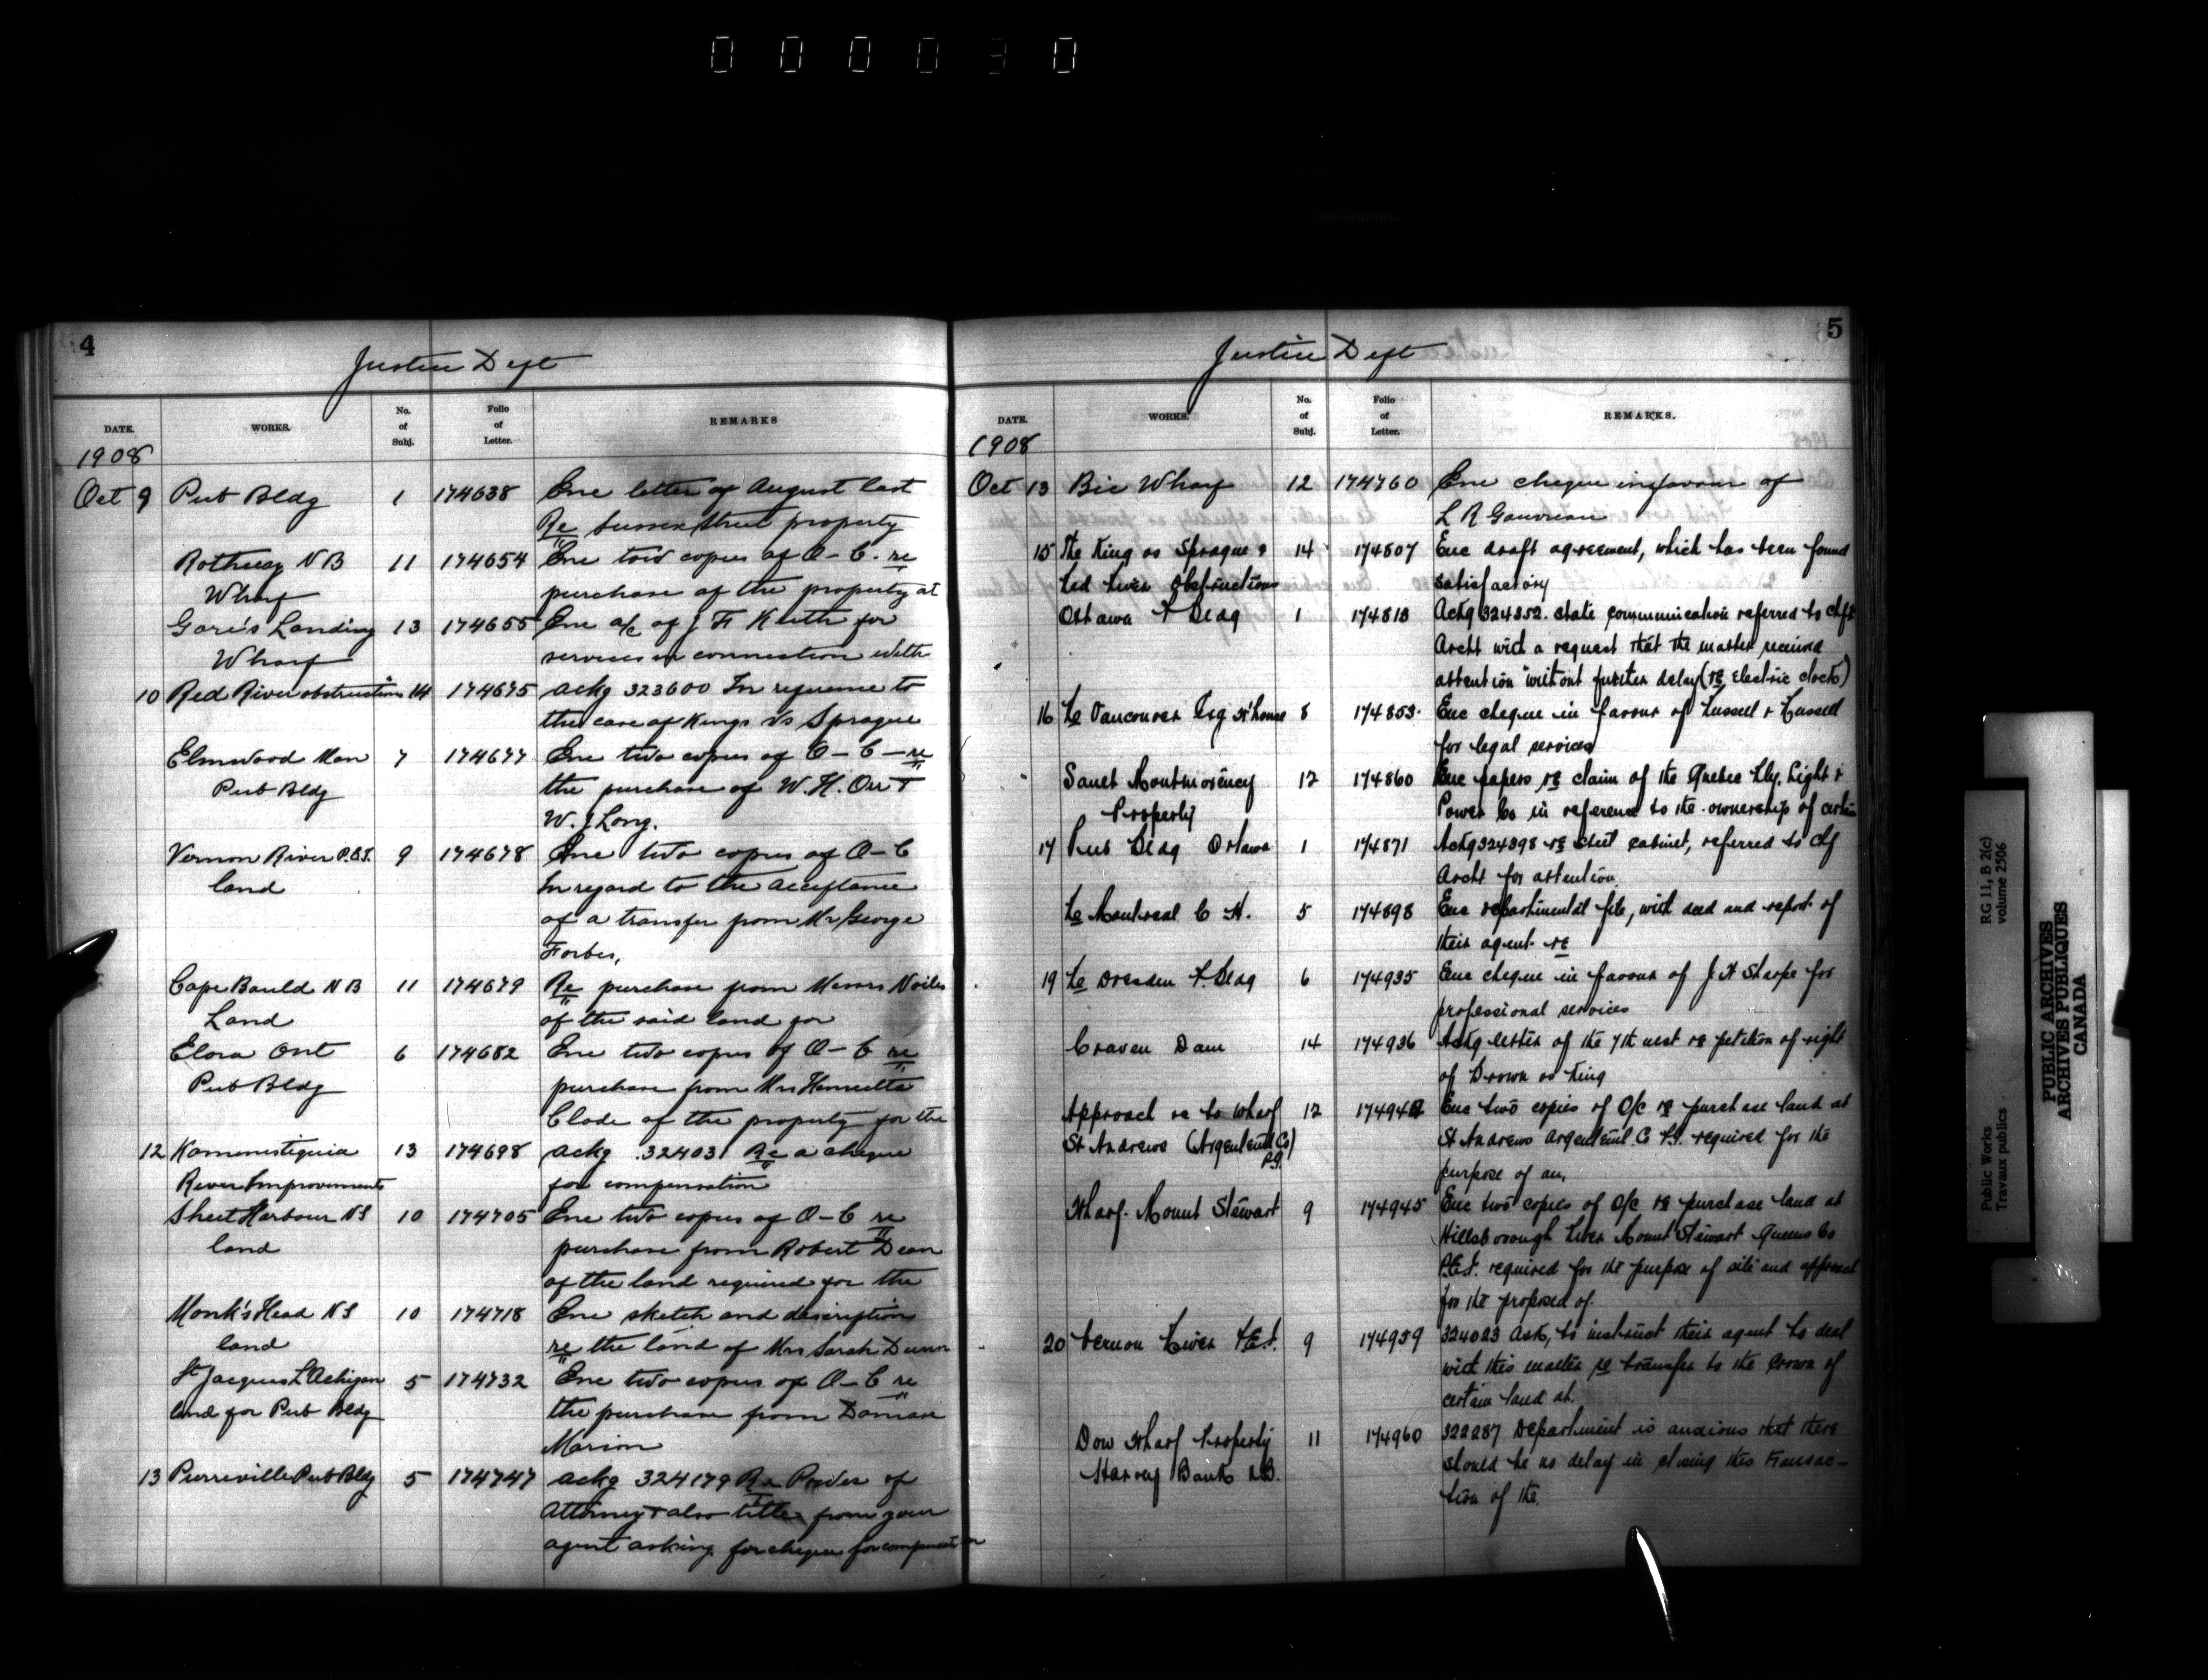 000030
4
Justice Dept
DATE. WORKS. No. of Subj. Folio of Letter. REMARKS
1908
Oct 9 Pub Bldg 1 174638 Enc letter of August last
Re Sussex Street property
Rothesay N B 11 174654 Enc two copies of O-C. re
Wharf purchase of the property at
Gore's Landing 13 174655 Enc a/c of J F Keith for
Wharf services in connection with
10 Red River obstructions 14 174675 ackg 323600 In reference to
the case of Kings Vs Sprague
Elmwood Man 7 174677 Enc two copies of O-C - re
Pub Bldg the purchase of W. H. Orr +
W. J Long.
Vernon River P.E.I. 9 174678 Enc two copies of O-C
land In regard to the acceptance
of a transfer from Mr George
Forbes,
Cape Bauld N B 11 174679 Re purchase from Messrs Noiles
Land of the said land for
Elora Ont 6 174682 Enc two copies of O-C re
Pub Bldg purchase from Mrs Henrietta
Clode of the property for the
12 Kaministiquia 13 174698 ackg 324031 Re a cheque
River Improvements for compensation
Sheet Harbour N S 10 174705 Enc two copies of O-C re
land purchase from Robert Dean
of the land required for the
Monk's Head N S 10 174718 Enc sketch and description
land re the land of Mrs Sarah Dunn
St Jacques L'Achigan 5 174732 Enc two copies of O-C re
land for Pub Bldg the purchase from Damase
Marion
13 Pierreville Pub Bldg 5 174747 ackg 324179 Re Power of
Attorney + also title from your
agent asking for cheque for compensation
5
Justice Dept
DATE. WORKS. No. of Subj. Folio of Letter. REMARKS.
1908
Oct 13 Bic Wharf 12 174760 Enc cheque in favour of
L R Gauvreau
15 The King vs Sprague & 14 174807 Enc draft agreement, which has been found
Red River Obstructions satisfactory
Ottawa P Bldg 1 174818 Ackg 324352. state communication referred to chf
Archt with a request that the matter received
attention without further delay (re Electric clock)
16 Re Vancouver Exg W'house 8 174853. Enc cheque in favour of Russell & Russell
for legal services
Sault Montmorency 12 174860 Enc papers re claim of the Quebec Rly. Light &
Property Power Co in reference to the ownership of certain
17 Pub Bldg Ottawa 1 174871 Ackg 324398 re steel cabinet, referred to chf
Archt for attention
Re Montreal C H. 5 174898 Enc departmental file, with deed and report of
their agent re
19 Re Dresden P. Bldg 6 174935 Enc cheque in favour of J H Sharpe for
professional services
Craven Dam 14 174936 Ackg letter of the 7th inst re petition of right
of Brown vs King
Approach re to wharf 12 174942 Enc two copies of O/c re purchase land at
St Andrews (Argenteuil Co) P.Q. St Andrews Argenteuil Co P.Q. required for the
purpose of an,
Wharf. Mount Stewart 9 174945 Enc two copies of O/c re purchase land at
Hillsborough River Mount Stewart Queens Co
P.E.I. required for the purpose of site and approach
for the proposed of.
20 Vernon River P.E.I. 9 174959 324023 Ask, to instruct their agent to deal
with this matter re transfer to the Crown of
certain land at.
Dow Wharf Property 11 174960 322287 Department is anxious that there
Harvey Bank N.B. should be no delay in closing this Transac-
tion of the.
Public Works RG 11, B 2(c)
Travaux publics volume 2506
PUBLIC ARCHIVES
ARCHIVES PUBLIQUES
CANADA